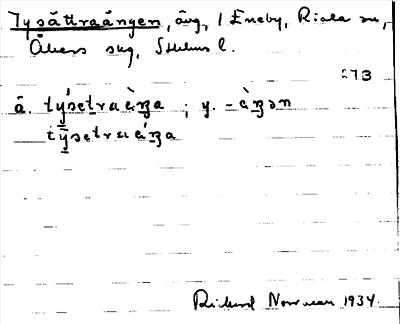 Tysättraängen, äng, i Eneby, Riala sn,
Åkers skg, Sthlms l.
273
ä. týsetraàŋa ; y. -àŋən
tỳsetraáŋa
Rickard Norrman 1934.